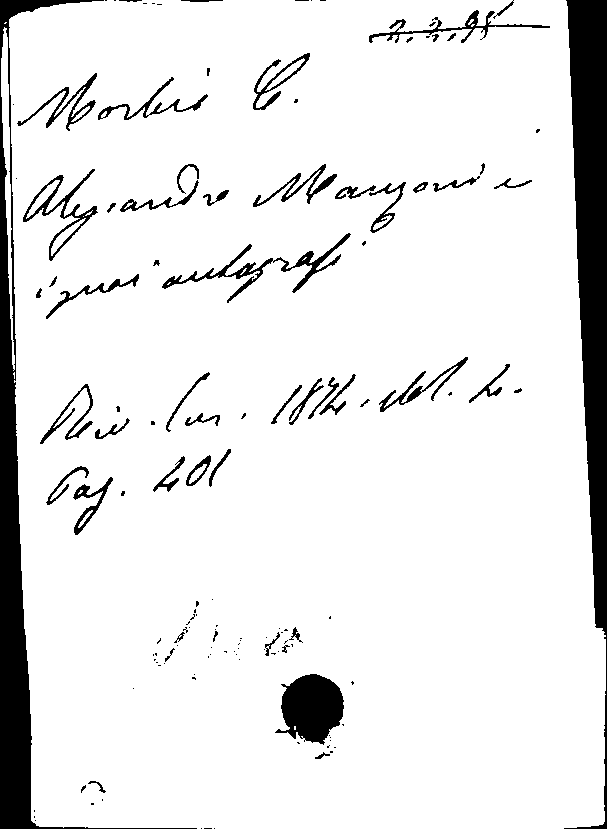 2.2.95
Morbio C.
Alessandro Manzoni e
i suoi autografi
Riv. Eur. 1874. Vol. 4.
Pag. 401